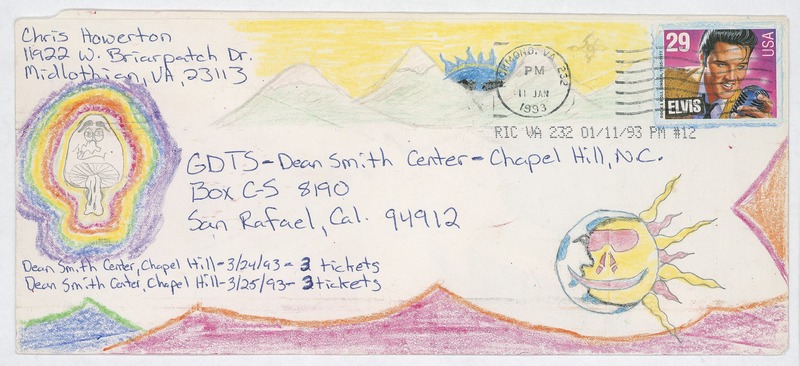 Chris Howerton
11922 W. Briarpatch Dr.
Midlothian, VA, 23113
RICHMOND, VA 232
PM
11 JAN
1993
29
USA
ELVIS
RIC VA 232 01/11/93 PM #12
GDTS-Dean Smith Center-Chapel Hill, N.C.
Box C-S 8190
San Rafael, Cal. 94912
Dean Smith Center, Chapel Hill-3/24/93-3 tickets
Dean Smith Center, Chapel Hill-3/25/93-3 tickets